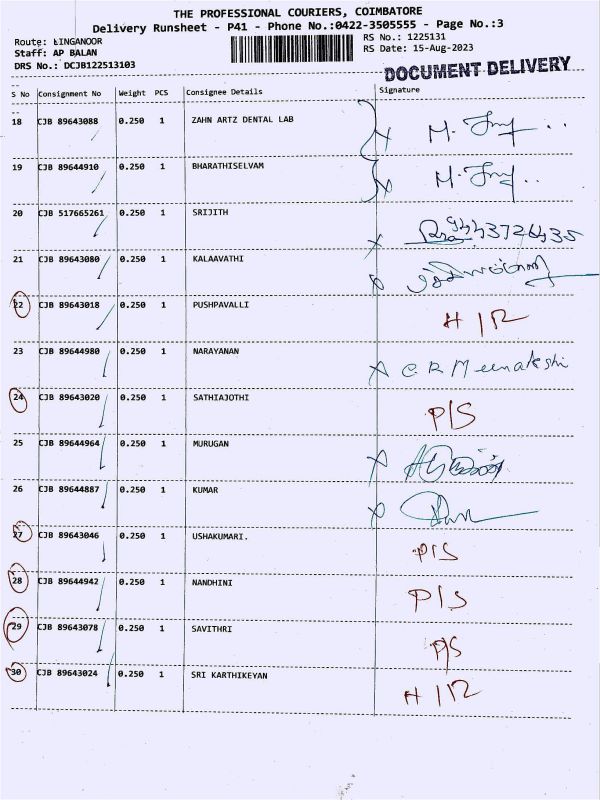 THE PROFESSIONAL COURIERS, COIMBATORE
Delivery Runsheet - P41 - Phone No.:0422-3505555 - Page No.:3
Route: LINGANOOR RS No.: 1225131
Staff: AP BALAN RS Date: 15-Aug-2023
DRS No.: DCJB122513103 DOCUMENT DELIVERY
S No Consignment No Weight PCS Consignee Details Signature
18 CJB 89643088 0.250 1 ZAHN ARTZ DENTAL LAB
19 CJB 89644910 0.250 1 BHARATHISELVAM
20 CJB 517665261 0.250 1 SRIJITH
21 CJB 89643080 0.250 1 KALAAVATHI
22 CJB 89643018 0.250 1 PUSHPAVALLI H/12
23 CJB 89644980 0.250 1 NARAYANAN C R Meenakshi
24 CJB 89643020 0.250 1 SATHIAJOTHI P/S
25 CJB 89644964 0.250 1 MURUGAN
26 CJB 89644887 0.250 1 KUMAR
27 CJB 89643046 0.250 1 USHAKUMARI. P/S
28 CJB 89644942 0.250 1 NANDHINI P/S
29 CJB 89643078 0.250 1 SAVITHRI P/S
30 CJB 89643024 0.250 1 SRI KARTHIKEYAN H/12